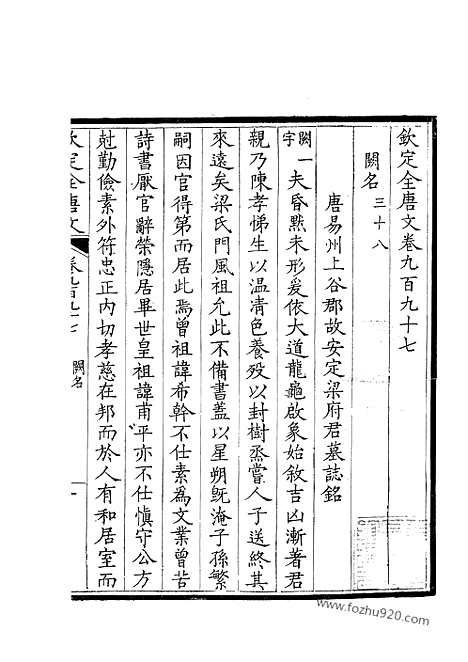 欽定全唐文卷九百九十七
闕名三十八
唐易州上谷郡故安定梁府君墓誌銘
闕一字夫昏黙未形爰依大道龍龜啟象始敘吉凶漸著君
親乃陳孝悌生以温清色養殁以封樹烝嘗人子送終其
來遠矣梁氏門風祖允此不備書蓋以星朔既淹子孫繁
嗣因官得第而居此焉曾祖諱希幹不仕素為文業曾昔
詩書厭官辭榮隱居畢世皇祖諱甫平亦不仕慎守公方
尅勤儉素外符忠正内切孝慈在邦而於人有和居室而
欽定全唐文
卷九百九十七
闕名
一
www.fozhu920.com